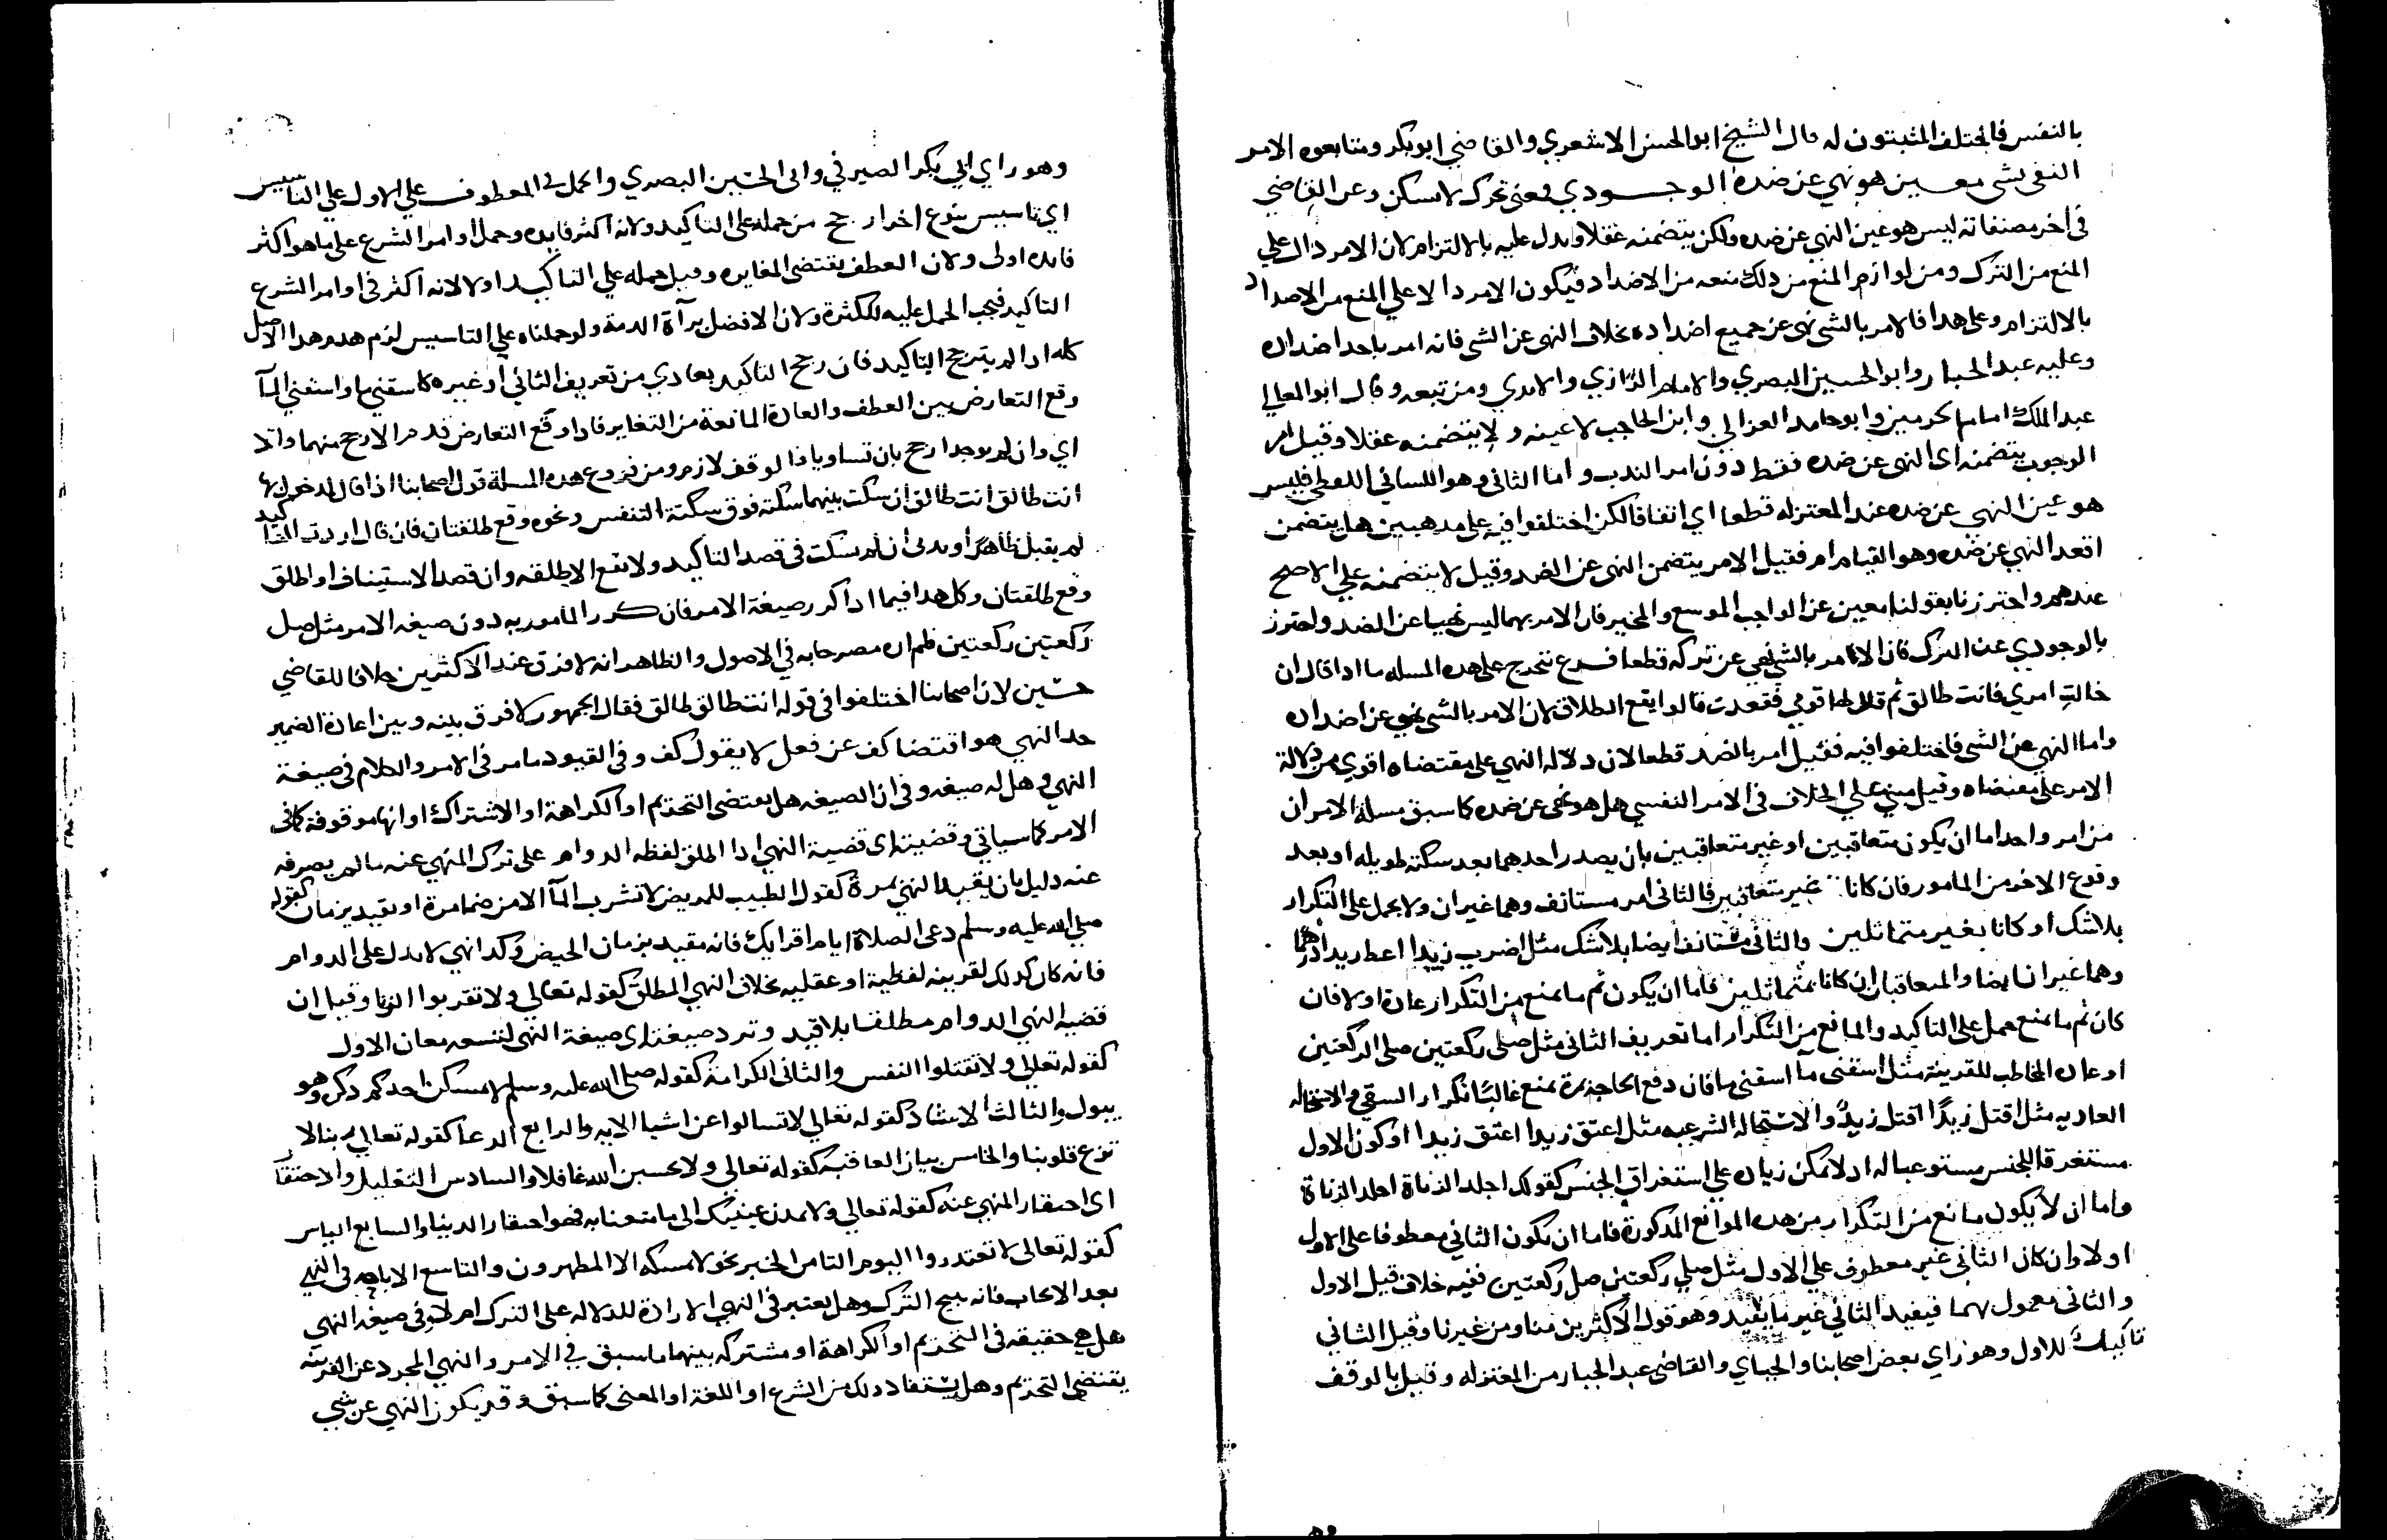 بالنفس فاختلف المثبتون له قال الشيخ ابو الحسن الاشعري والقاضي ابو بكر ومتابعوه الامر
النفسي بشي معين هو نهي عن ضده الوجودي فمعنى تحرك لا تسكن وعن القاضي
في اخر مصنفاته ليس هو عين النهي عن ضده ولكن يتضمنه عقلا ويدل عليه بالالتزام لان الامر دال علي
المنع من الترك ومن لوازم المنع من ذلك منعه من الاضداد فيكون الامر دالا علي المنع من الاضداد
بالالتزام وعلى هدا فالامر بالشي نهى عن جميع اضداده بخلاف النهى عن الشي فانه امر باحد اضداده
وعليه عبد الجبار وابو الحسين البصري والامام الرازي والامدي ومن تبعه وقال ابو المعالي
عبد الملك امام الحرمين وابو حامد الغزالي وابن الحاجب لا عينه ولا يتضمنه عقلا وقيل امر
الوجوب يتضمنه اى النهى عن ضده فقط دون امر الندب واما الثانى وهو اللسانى اللفظى فليس
هو عين النهي عن ضده عند المعتزله قطعا اي اتفاقا لكن اختلفوا فيه على مدهبين هل يتضمن
اقعد النهي عن ضده وهو القيام ام فقيل الامر يتضمن النهى عن الضد وقيل لا يتضمنه علي الاصح
عندهم واحترزنا بقولنا معين عن الواجب الموسع والمخير فان الامر بهما ليس نهيا عن الضد واحترز
بالوجودي عن الترك فان الامر بالشي نهى عن تركه قطعا فرع تتخرج على هده المسله ما ادا قال ان
خالفت امري فانت طالق ثم قال لها قومي فقعدت فالوا يقع الطلاق لان الامر بالشى نهى عن اضداده
واما النهي عن الشى فاختلفوا فيه فقيل امر بالضد قطعا لان دلاله النهي على مقتضاه اقوى من دلالة
الامر على مقتضاه وقيل مبني علي الخلاف فى الامر النفسي هل هو نهى عن ضده كما سبق مسلة الامر ان
من امر واحد اما ان يكون متعاقبين او غير متعاقبين بان يصدر احدهما بعد سكتة طويله او بعد
وقوع الاخر من المامور فان كانا غير متعاقبين فالثانى امر مستانف وهما غيران ولا يحمل على التكرار
بلا شك او كانا بغير متماثلين والثانى مستانف ايضا بلا شك مثل اضرب زيدا اعط زيدا درهما
وهما غيران ايضا والمتعاقبان ان كانا بمتماثلين فاما ان يكون ثم ما يمنع من التكرار عادة او لا فان
كان ثم ما يمنع حمل على التاكيد والمانع من التكرار اما تعريف الثانى مثل صلى ركعتين صلى الركعتين
او عادة المخاطب للقرينة مثل اسقنى ماً اسقنى ما فان دفع الحاجة بمرة يمنع غالبا تكرار السقي والاستحاله
العاديه مثل اقتل زيدًا اقتل زيدًا والاستحاله الشرعيه مثل اعتق زيدا اعتق زيدا او كون الاول
مستغرقا للجنس مستوعبا له اد لا يمكن زياده علي استغراق الجنس كقولك اجلد الزناة اجلد الزناة
واما ان لا يكون مانع من التكرار من هده الموانع المذكورة فاما ان يكون الثاني معطوفا على الاول
او لا وان كان الثانى غير معطوف علي الاول مثل صلي ركعتين صل ركعتين ففيه خلاف قيل الاول
والثانى معمول بهما فيفيد الثاني غير ما يفيد وهو قول الاكثرين منا ومن غيرنا وقيل الثاني
تاكيد للاول وهو راي بعض اصحابنا والجباي والقاضى عبد الجبار من المعتزله وقيل بالوقف
وهو راي ابي بكر الصيرفي وابى الحسين البصري والحمل فى المعطوف علي الاول علي التاسيس
اي تاسيس نوع اخر ارجح من حمله على التاكيد ولانه اكثر فايده وحمل اوامر الشرع على ما هو اكثر
فايده اولى ولان العطف يقتضى المغايره وقيل حمله علي التاكيد اولا لانه اكثر فى اوامر الشرع
التاكيد فيجب الحمل عليه للكثرة ولان الافضل برآة الدمة ولو حملناه علي التاسيس لزم هدم هدا الاصل
كله ادا لم يترجح التاكيد فان رجح التاكيد بعادي من تعريف الثاني او غيره كاسقني ما واسقني المآ
وقع التعارض بين العطف والعادة المانعة من التغاير فادا وقع التعارض قدم الارجح منهما والا
اي وان لم يوجد ارجح بان تساويا فالوقف لازم ومن فروع هده المسلة قول اصحابنا اذا قال لمدخول بها
انت طالق انت طالق ان سكت بينهما سكتة فوق سكتة التنفس ونحوه وقع طلقتان فان قال اردت التاكيد
لم يقبل ظاهرًا ويدين ان لم يسكت فى قصد التاكيد ولا تقع الا طلقه وان قصد الاستيناف او اطلق
وقع طلقتان وكل هدا فيما ادا كرر صيغة الامر فان كرر المامور به دون صيغه الامر مثل صل
ركعتين ركعتين فلم اره مصرحا به في الاصول والظاهر انه لا فرق عند الاكثرين خلافا للقاضي
حسين لان اصحابنا اختلفوا فى قوله انت طالق طالق فقال الجمهور لا فرق بينه وبين اعادة الضمير
حد النهي هو اقتضا كف عن فعل لا بقول كف وفى القيود ما مر فى الامر والكلام فى صيغة
النهي وهل له صيغه وفى ان الصيغه هل تقتضى التحريم او الكراهة او الاشتراك او انها موقوفة كما فى
الامر كما سياتي وقضيته اى قضية النهي ادا اطلق لفظه الدوام على ترك المنهي عنه ما لم يصرفه
عنه دليل بان يقيد النهي بمرة كقول الطبيب للمريض لا تشرب المآ الا من صامرة او يقيد بزمان كقوله
صلى الله عليه وسلم دعى الصلاة ايام اقرايك فانه مقيد بزمان الحيض وكد انهي لا يدل على الدوام
فانه كان كدلك لقرينه لفظية او عقليه بخلاف النهي المطلق كقوله تعالي ولا تقربوا الزنا وقيل ان
قضيه النهي الدوام مطلقا بلا قيد وترد صيغته اى صيغة النهى لتسعه معان الاول
كقوله تعالي ولا تقتلوا النفس والثانى الكراهة كقوله صلى الله عليه وسلم لا يمسكن احدكم دكره وهو
يبول والثالث الارشاد كقوله تعالي لا تسالوا عن اشيا الايه والرابع الدعا كقوله تعالي ربنا لا
تزغ قلوبنا والخامس بيان العاقبه كقوله تعالي ولا تحسبن الله غافلا والسادس التقليل والاحتقار
اى احتقار المنهي عنه كقوله تعالي ولا تمدن عينيك الى ما متعنا به فهو احتقار الدنيا والسابع الياس
كقوله تعالى لا تعتدروا اليوم الثامن الخبر نحو لا يمسه الا المطهرون والتاسع الاباحه فى النهي
بعد الايجاب فانه يبيح الترك وهل يعتبر فى النهي الارادة للدلاله على الترك ام لا وفى صيغه النهي
هل هي حقيقه فى التحريم او الكراهة او مشتركه بينهما ما سبق في الامر والنهي المجرد عن القرينه
يقتضي التحريم وهل يستفاد دلك من الشرع او اللغة او المعنى كما سبق وقد يكون النهي عن شي